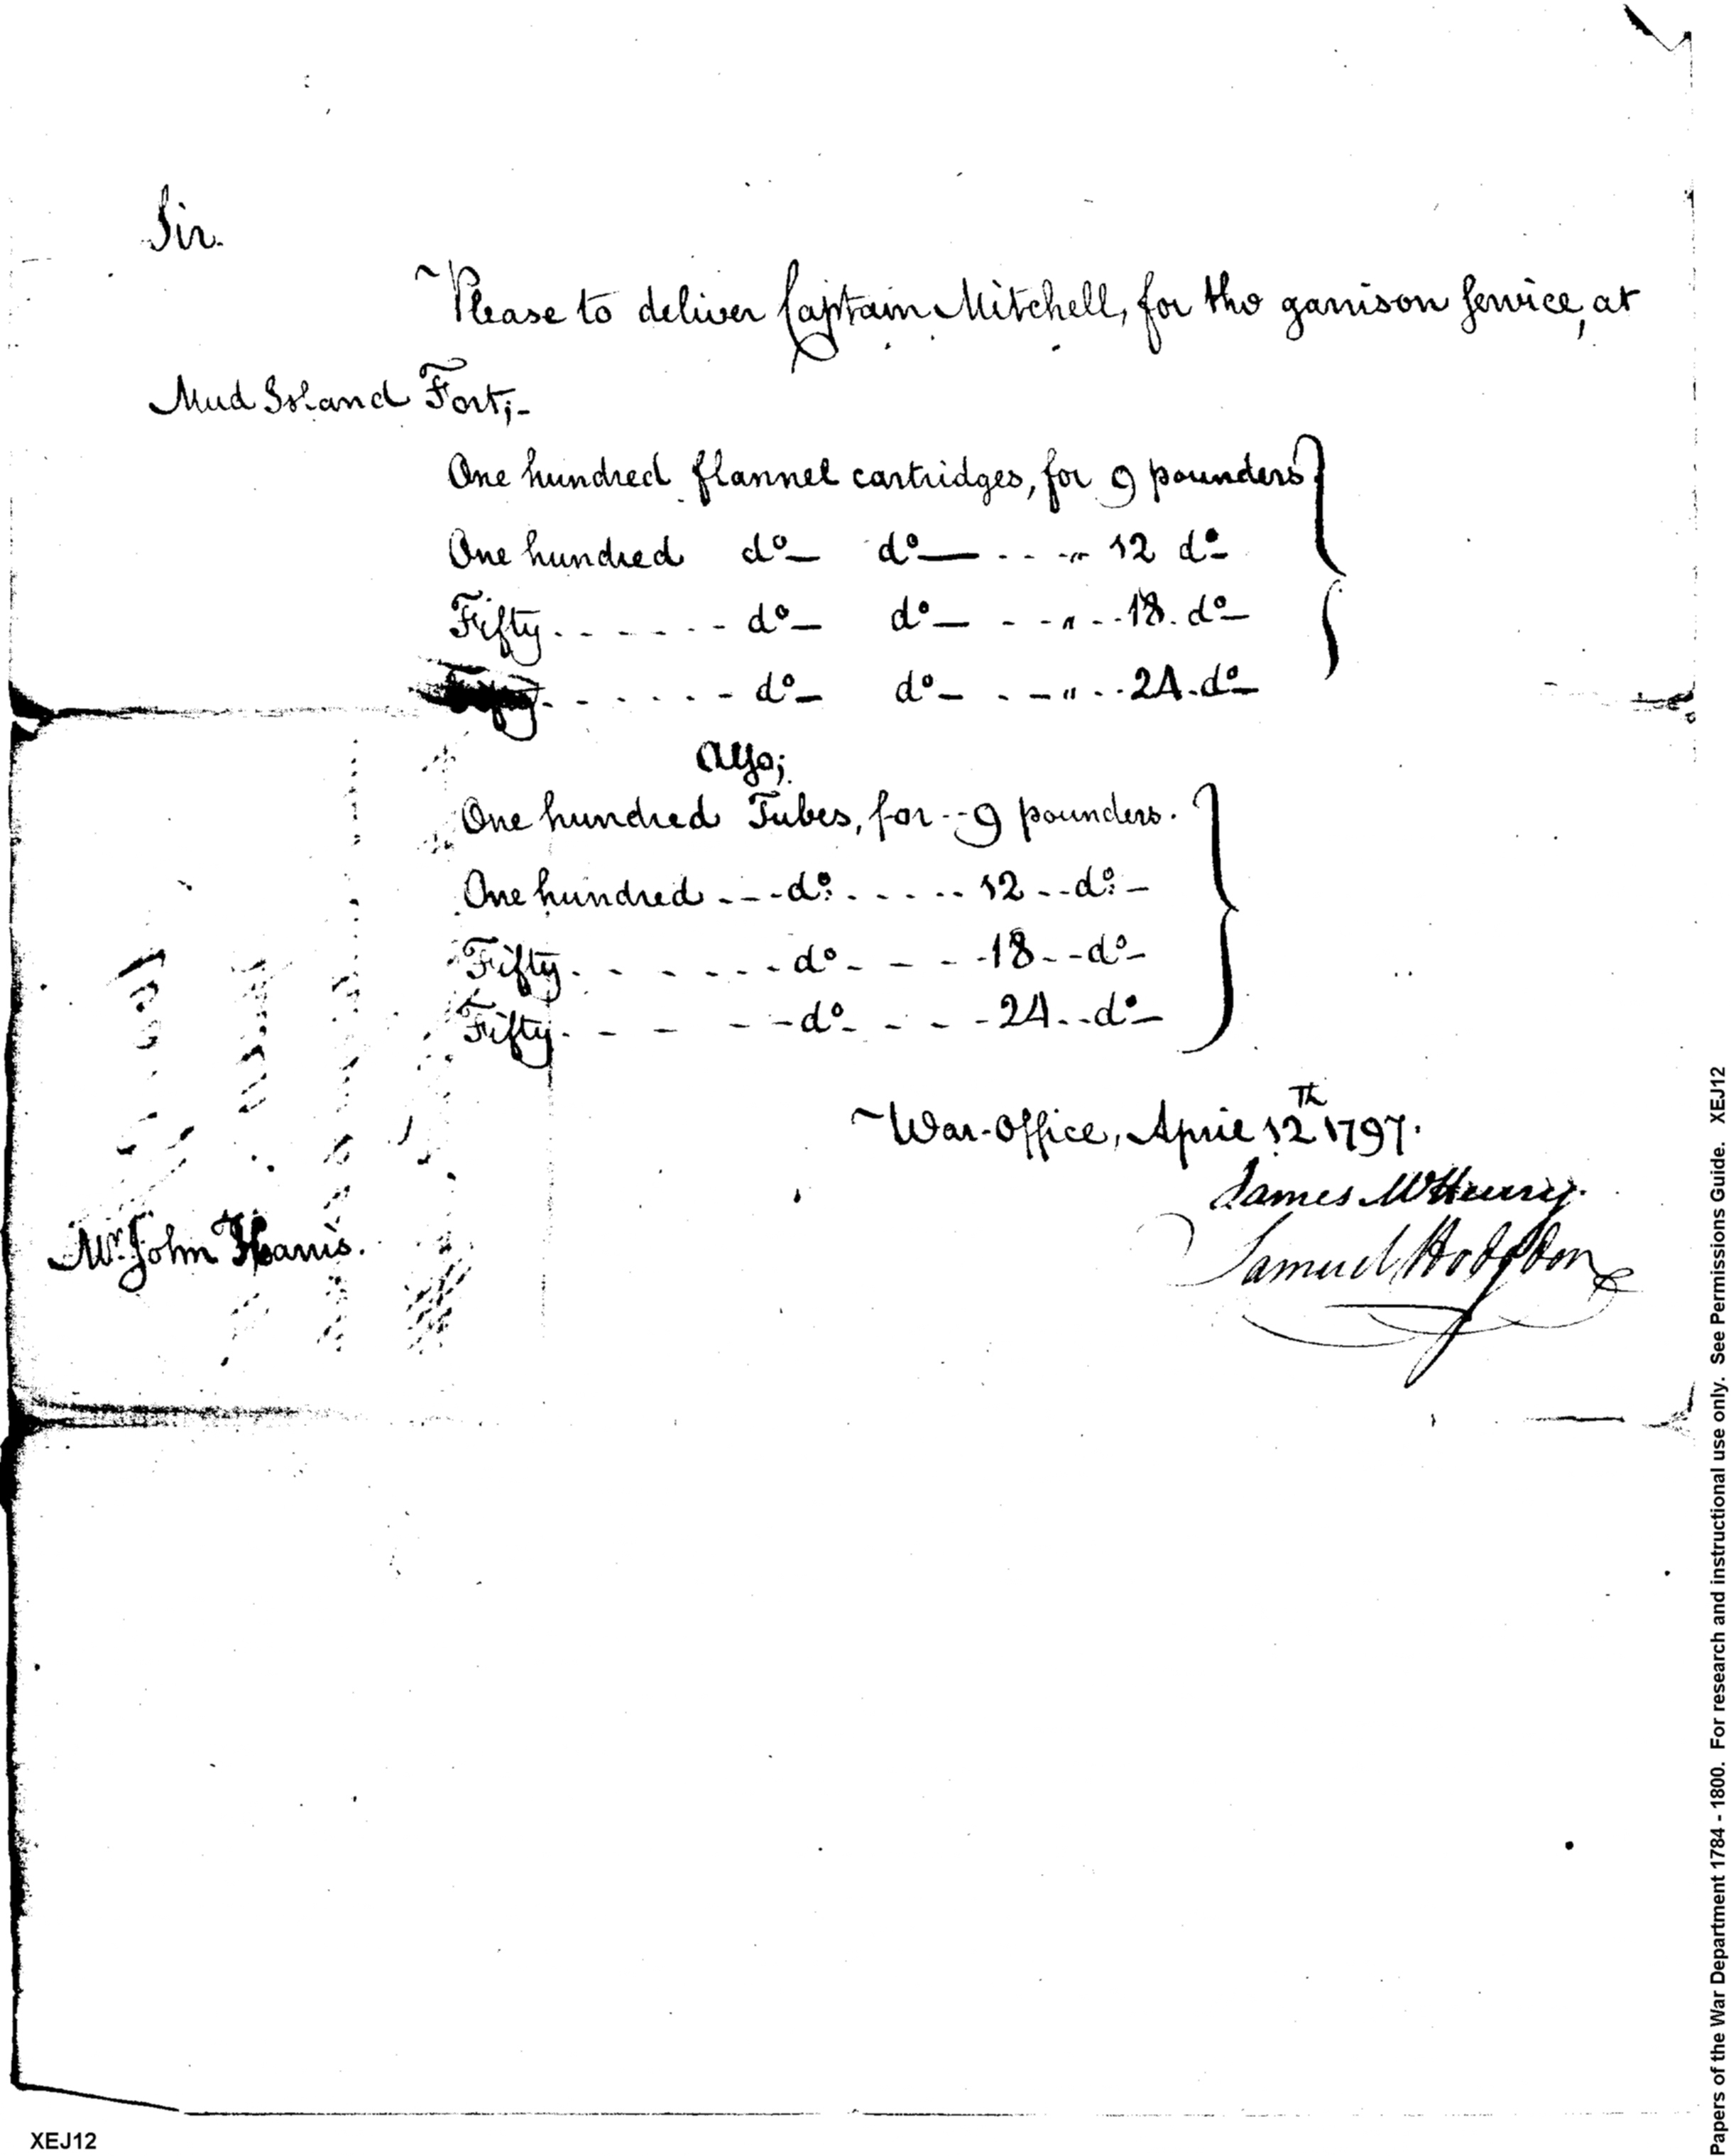 Sir.
Please to deliver Captain Mitchell, for the garrison service, at
Mud Island Fort;-
One hundred flannel cartridges, for 9 pounders
One hundred do do " 12 do
Fifty do do " 18 do
Fifty do do " 24 do
Also;
One hundred Tubes, for 9 pounders.
One hundred do 12 do
Fifty do 18 do
Fifty do 24 do
War-Office, April 12th 1797.
James McHenry.
Samuel Hodgdon
Mr. John Harris.
XEJ12
Papers of the War Department 1784 - 1800. For research and instructional use only. See Permissions Guide. XEJ12